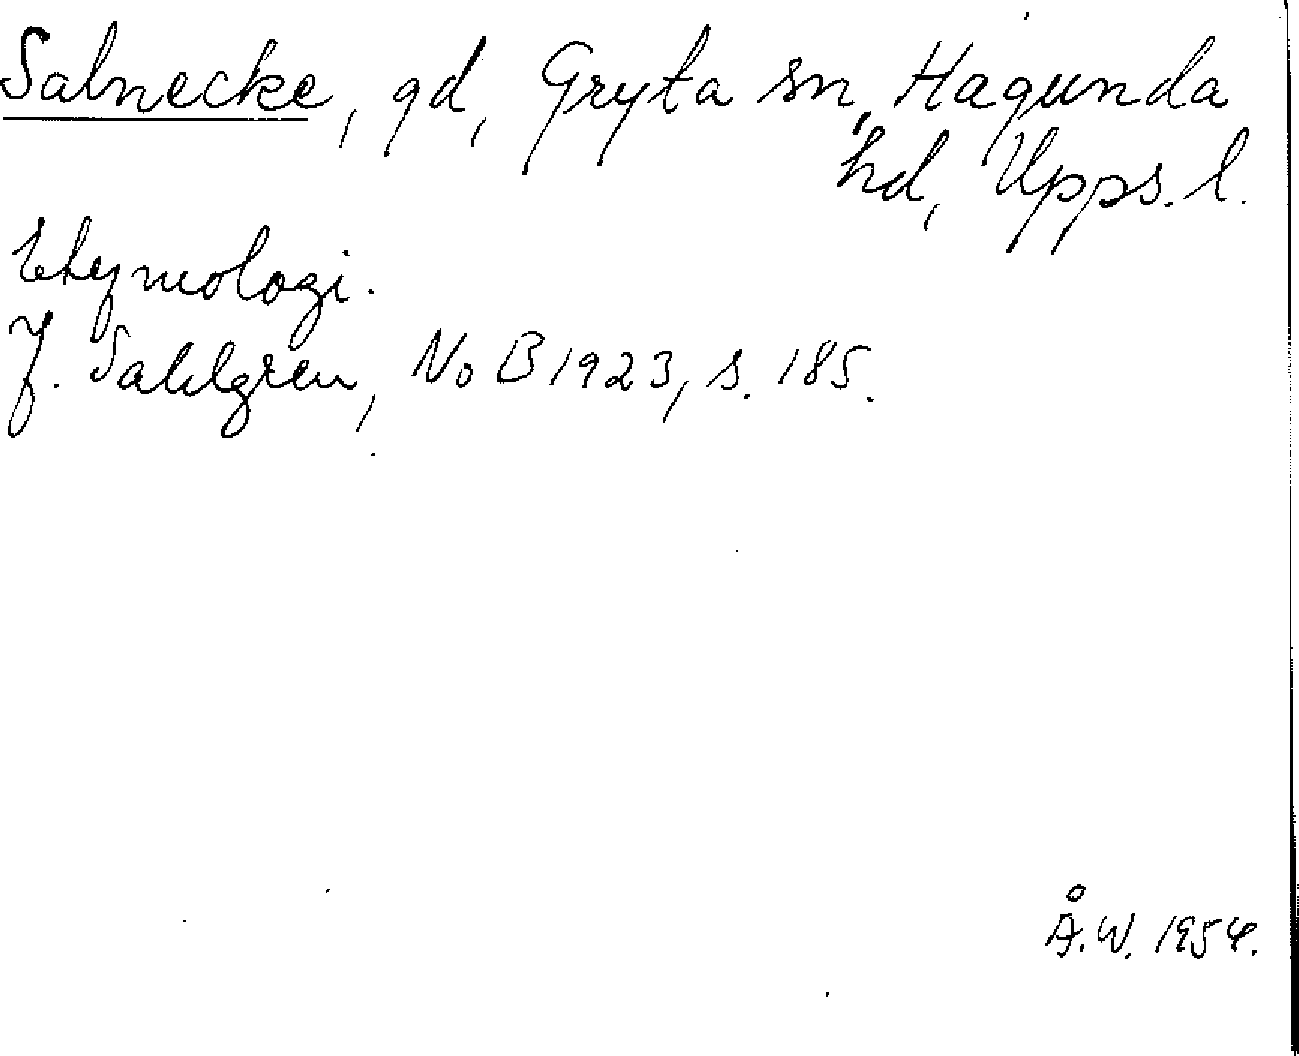 Salnecke, gd, Gryta sn, Hagunda
hd, Upps. l.
Etymologi.
J. Sahlgren, NoB 1923, s. 185.
Å.W. 1954.